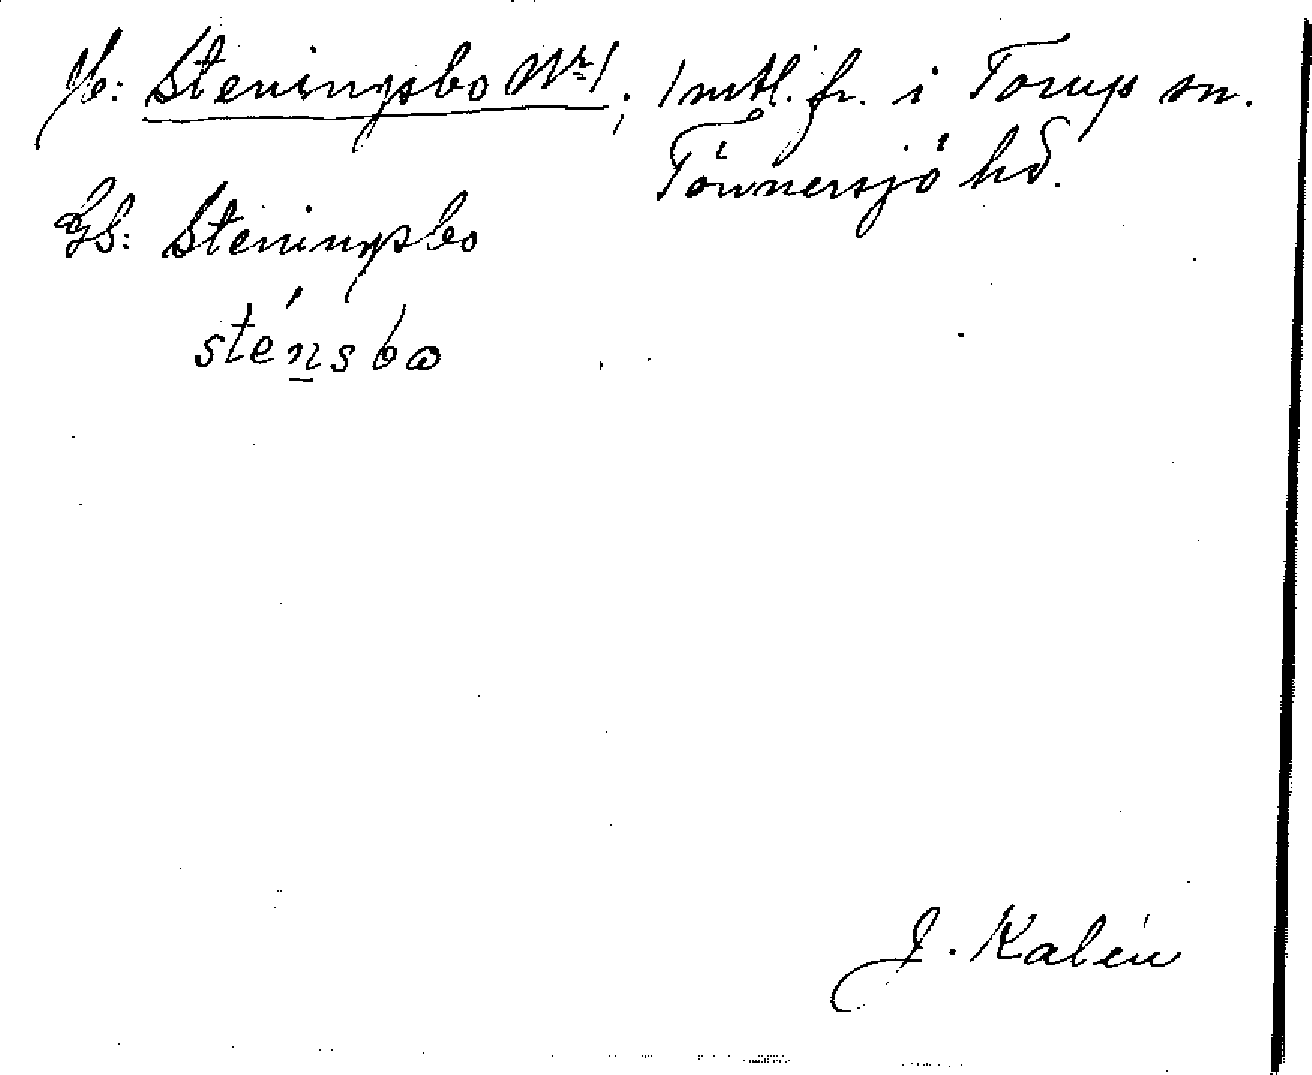 Jb: Steningsbo Nr 1; 1 mtl. fr. i Torup sn.
Tönnersjö hd.
GS: Steningsbo
sténsbo
J. Kalén